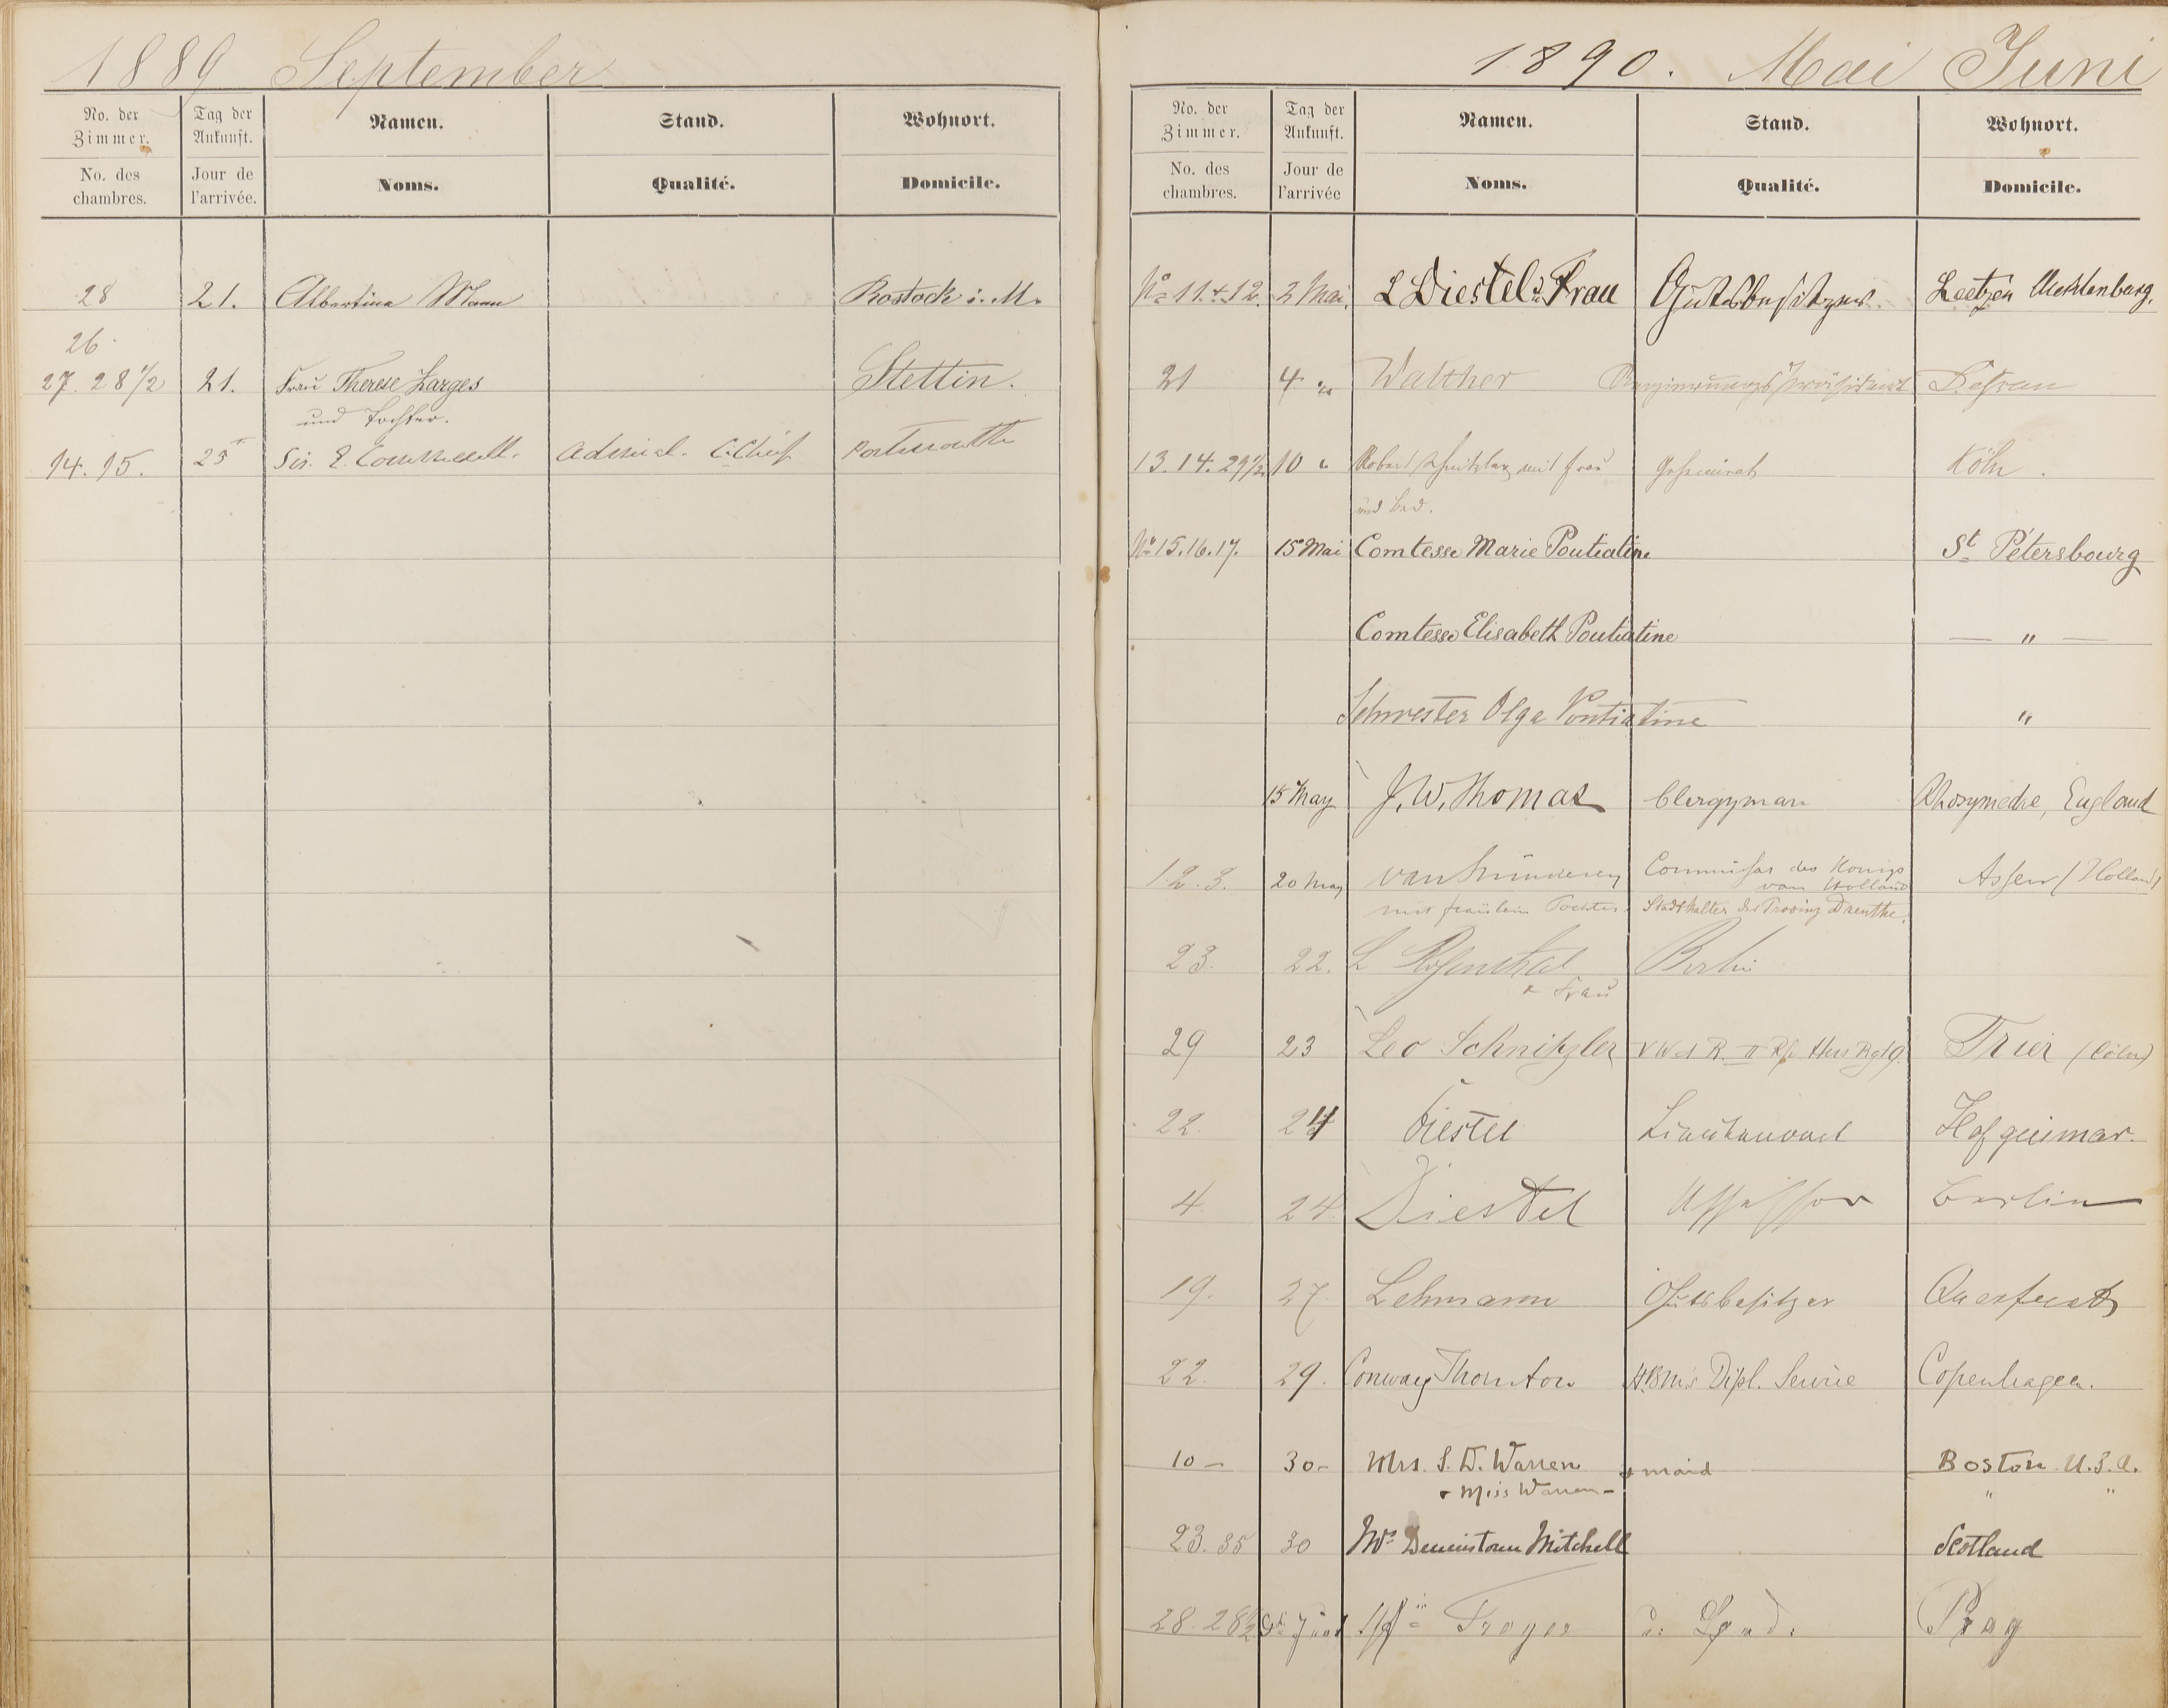 1889 September
No. der Zimmer. Tag der Ankunft. Namen. Stand. Wohnort.
No. des chambres. Jour de l'arrivée. Noms. Qualité. Domicile.
28 21. Albertine Mann Rostock i. M.
26
27. 28 1/2 21. Frau Therese Zarges Stettin.
und Tochter.
14. 15. 25 Sir. E. Admiral
1890. Mai Juni
No. der Zimmer. Tag der Ankunft. Namen. Stand. Wohnort.
No. des chambres. Jour de l'arrivée Noms. Qualité. Domicile.
No 11 + 12. 2 Mai. L Diestel u. Frau Gutsbesitzer. Leetzen Mecklenburg.
21 4 " Walther
13. 14. 29 1/2 10 " Robert Schnitzler mit Frau Geheimrat Köln.
und Bed.
No 15. 16. 17. 15 Mai Comtesse Marie Poutiatine St Pétersbourg
Comtesse Elisabeth Poutiatine — " —
Schwester Olga Poutiatine "
15 May J. W. Thomas Clergyman Rhosymedre, England
1. 2. 3. 20 May van Commissar des Königs Assen (Holland)
van Holland
mit fräulein Tochter. Stadthalter der Provinz Drenthe.
23. 22. L Rosenthal Berlin
& Frau
29 23 Leo Schnitzler Trier (Cöln)
22. 24 Diestel Lieutenant Hofgeismar.
4 24 Diestel Assessor Berlin
19. 27 Lehmann Gutsbesitzer Querfurth
22. 29. Conway Thornton H.B.M.s Dipl. Service Copenhagen.
10 – 30 – Mrs. S. D. Warren + maid Boston U.S.A.
+ Miss Warren – " "
23. 35 30 Mrs Dennistoun Mitchell Scotland
28. 28 1/2 Juni Troyer Prag